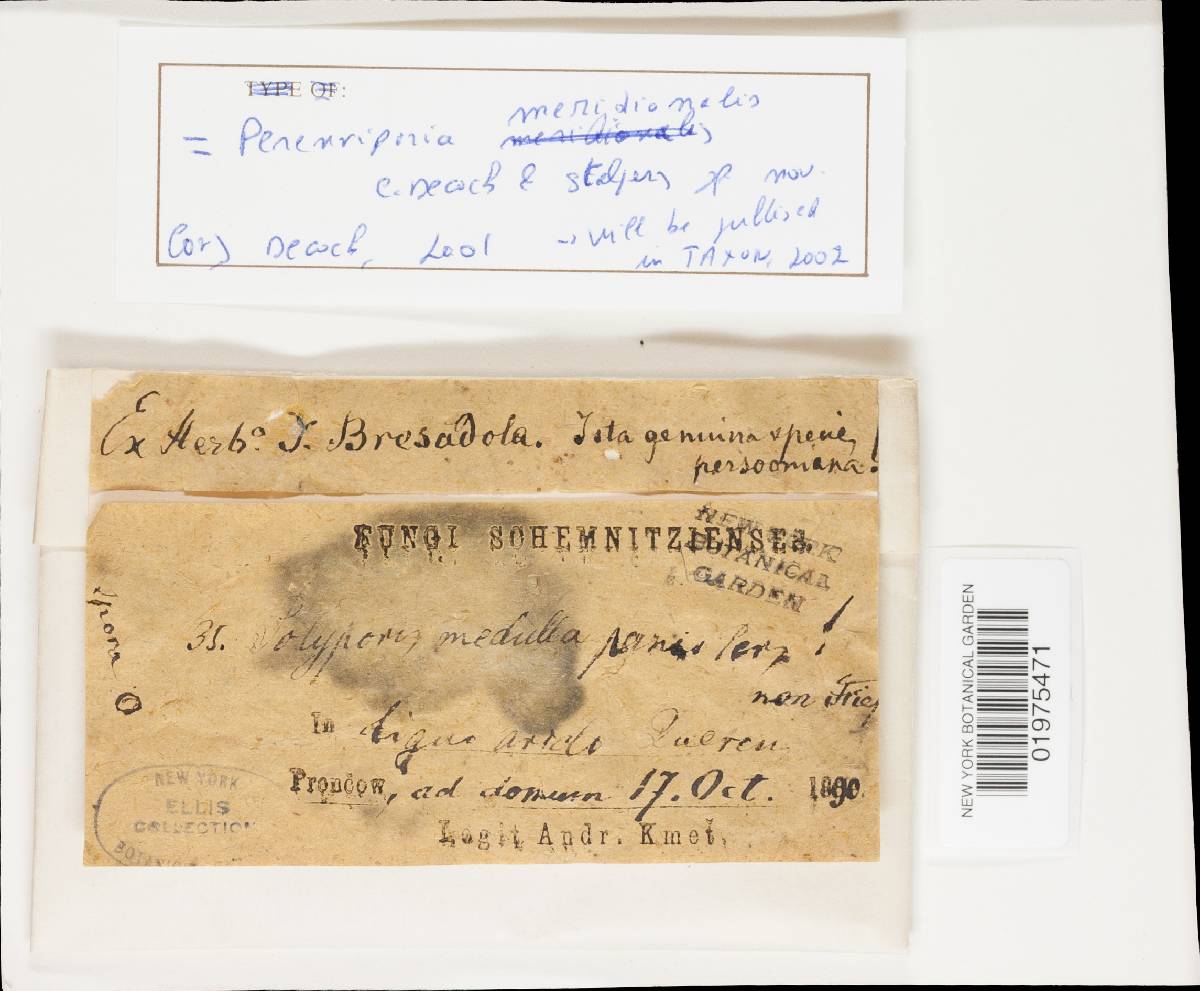 TYPE OF:
= Perenniporia meridionalis
meridionalis
C. Decock & Stalpers sp nov.
Cony Decock, 2001 → will be pullised
in TAXON, 2002
Ex Herbo. J. Bresadola. Ista genuina specie,
persooniana!
FUNGI SCHEMNITZIENSES.
NEW YORK
BOTANICAL
GARDEN
spora O
35. Polyporus medulla panis Pers !
non Fries
In ligno arido Quercu
Prenčow, ad domum 17. Oct. 1890
Legit Andr. Kmeť.
NEW YORK
ELLIS
COLLECTION
BOTANIC
NEW YORK BOTANICAL GARDEN
01975471